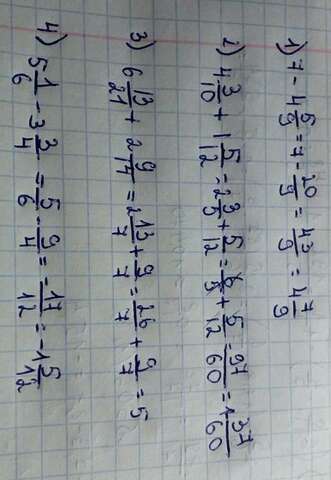 1) 7 - 4 5/9 = 7 - 20/9 = 43/9 = 4 7/9
2) 4 3/10 + 1 5/12 - 2 3/5 + 5/12 = 6/5 + 5/12 = 97/60 = 1 37/60
3) 6 13/21 + 2 9/14 = 2 13/7 + 9/7 = 26/7 + 9/7 = 5
4) 5 1/6 - 3 3/4 = 5/6 - 9/4 = -17/12 = -1 5/12